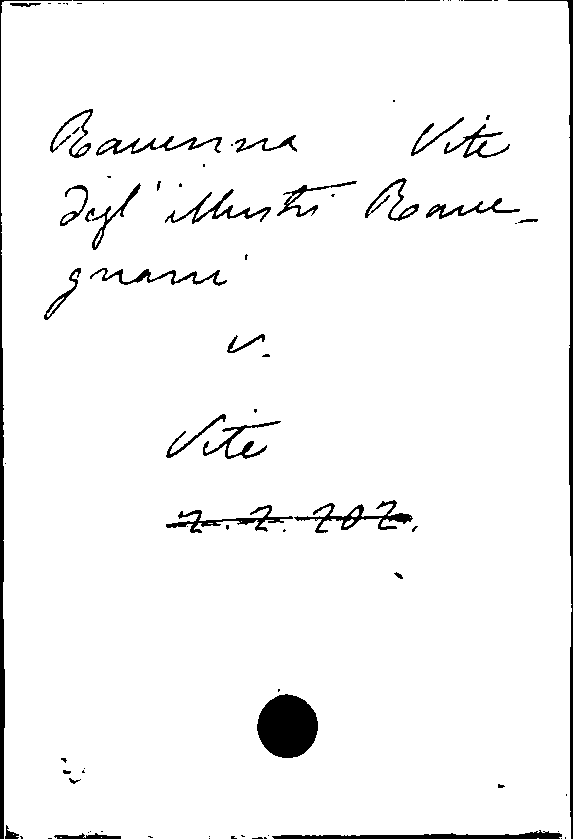 Ravenna Vite
degl'illustri Rave-
gnani
v.
Vite
2.2.202.